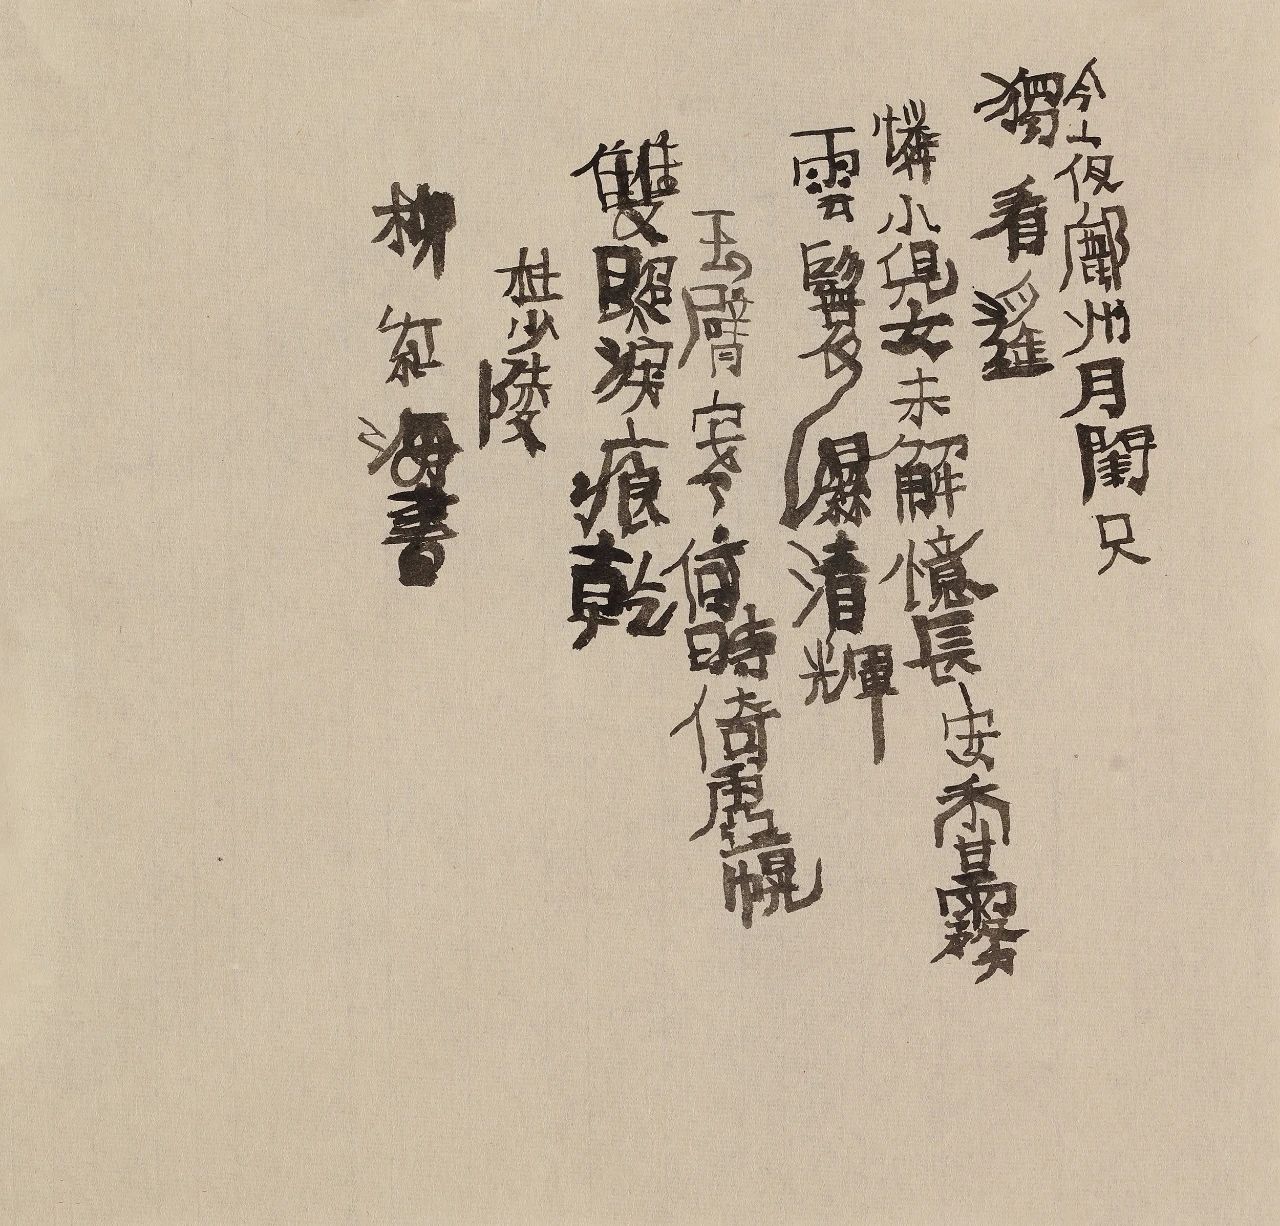 今夜鄜州月閨只
獨看遙
憐小兒女未解憶長安香霧
雲鬟濕清輝
玉臂寒何時倚虛幌
雙照淚痕乾
杜少陵
柳紅海書